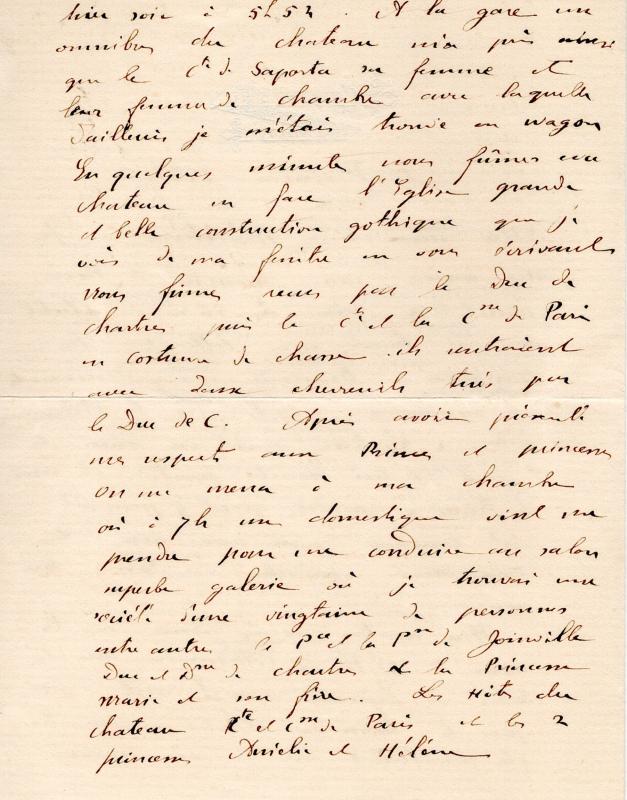 hier soir à 5h 52. A la gare un
omnibus du chateau m'a pris ainsi
que le Cte de Saporta sa femme et
leur femme de chambre avec laquelle
d'ailleurs je m'étais trouvé en wagon
En quelques minutes nous fûmes au
chateau en face l'Eglise grande
et belle construction gothique que je
vois de ma fenêtre en vous écrivant
Nous fûmes reçus par le Duc de
chartres puis le Cte et la Csse de Paris
en costume de chasse. ils rentraient
avec chevreuils tués par
le Duc de C. Après avoir présenté
mes respects aux Princes et princesses
on me mena à ma chambre
où à 7h un domestique vint me
prendre pour me conduire au salon
superbe galerie où je trouvai une
société d'une vingtaine de personnes
entre autres le Pce et la Psse de Joinville
Duc et Dsse de chartres & la Princesse
Marie et son frère. Les Hôtes du
chateau Cte et Csse de Paris et les 2
princesses Amélie et Hélène